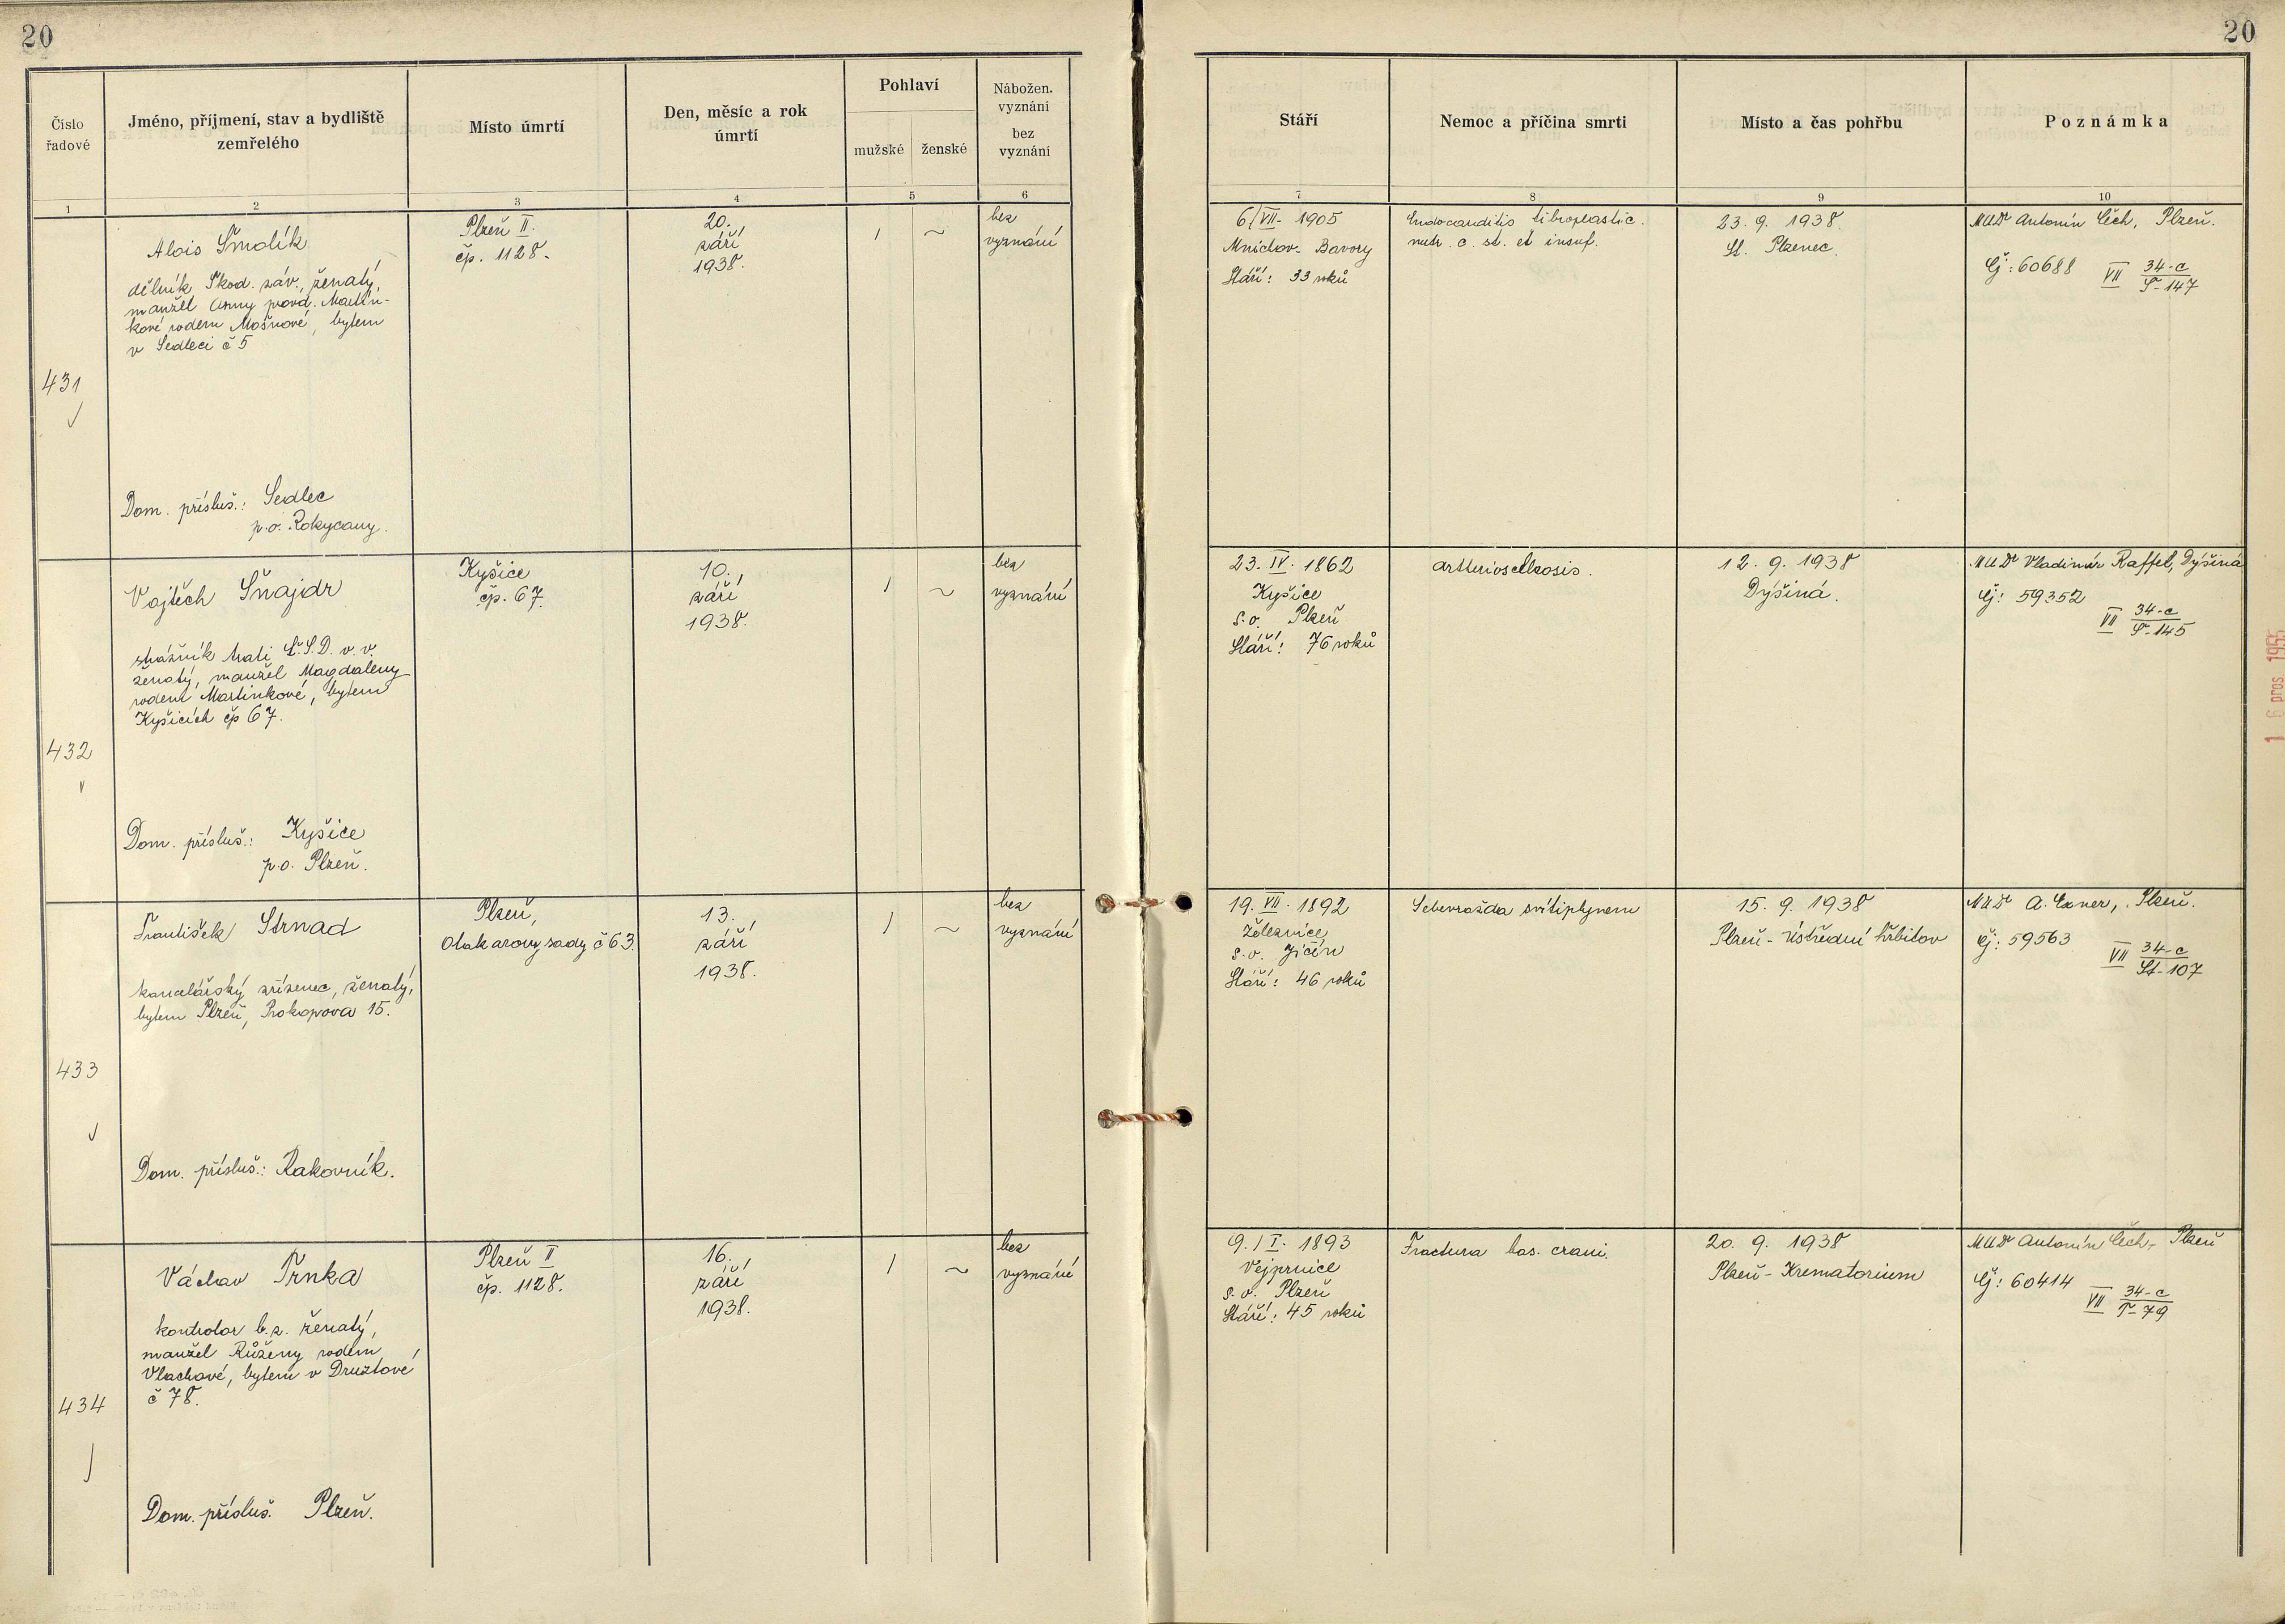 20
20
Číslo řadové
Jméno, příjmení, stav a bydliště zemřelého
Místo úmrtí
Den, měsíc a rok úmrtí
Pohlaví
mužské
ženské
Nábožen. vyznání
bez vyznání
Stáří
Nemoc a příčina smrti
Místo a čas pohřbu
Poznámka
1 2 3 4 5 6 7 8 9 10
431
Alois Smolík
dělník Škod. záv., ženatý,
manžel Anny provd. Martín-
kové rodem Mošnové, bytem
v Sedleci č 5
Dom. přísluš.: Sedlec
p.o. Rokycany.
Plzeň II.
čp. 1128.
20.
září
1938.
1 ~
bez
vyznání
6/VII. 1905
Mnichov-Bavory
Stáří: 33 roků
Endocarditis fibroplastic.
mitr. c. st. et insuf.
23. 9. 1938.
St. Plzenec.
MUDr Antonín Čech, Plzeň.
Čj: 60688 VII 34-c
S-147
432
Vojtěch Šnajdr
strážník trati Č.S.D. v. v.
ženatý, manžel Magdaleny
rodem Martinkové, bytem
Kyšicích čp 67.
Dom. přísluš.: Kyšice
p.o. Plzeň.
Kyšice
čp. 67.
10.
září
1938.
1 ~
bez
vyznání
23. IV. 1862
Kyšice
s.o. Plzeň
Stáří: 76 roků
12. 9. 1938
Dýšina.
MUDr Vladimír Raffel, Dýšiná
Čj: 59352
VII 34-c
Š-145
433
František Strnad
kancelářský zřízenec, ženatý,
bytem Plzeň, Prokopova 15.
Dom. přísluš.: Rakovník.
Plzeň,
Otakarovy sady č 63.
13.
září
1938.
1 ~
bez
vyznání
19. VII. 1892
Železnice
s.o. Jičín
Stáří: 46 roků
Sebevražda svítiplynem
15. 9. 1938
Plzeň - Ústřední hřbitov
MUDr A. Exner, Plzeň.
čj: 59563 VII 34-c
St-107
434
Václav Trnka
kontrolor b.z. ženatý,
manžel Růženy rodem
Vlachové, bytem v Druztové
č 78.
Dom. přísluš. Plzeň.
Plzeň II
čp. 1128.
16.
září
1938.
1 ~
bez
vyznání
9./I. 1893
Vejprnice
s.o. Plzeň
Stáří: 45 roků
Fractura bas. crani.
20. 9. 1938
Plzeň - Krematorium
MUDr Antonín Čech, Plzeň
Čj: 60414 VII 34-c
T-79
16 pros. 1955